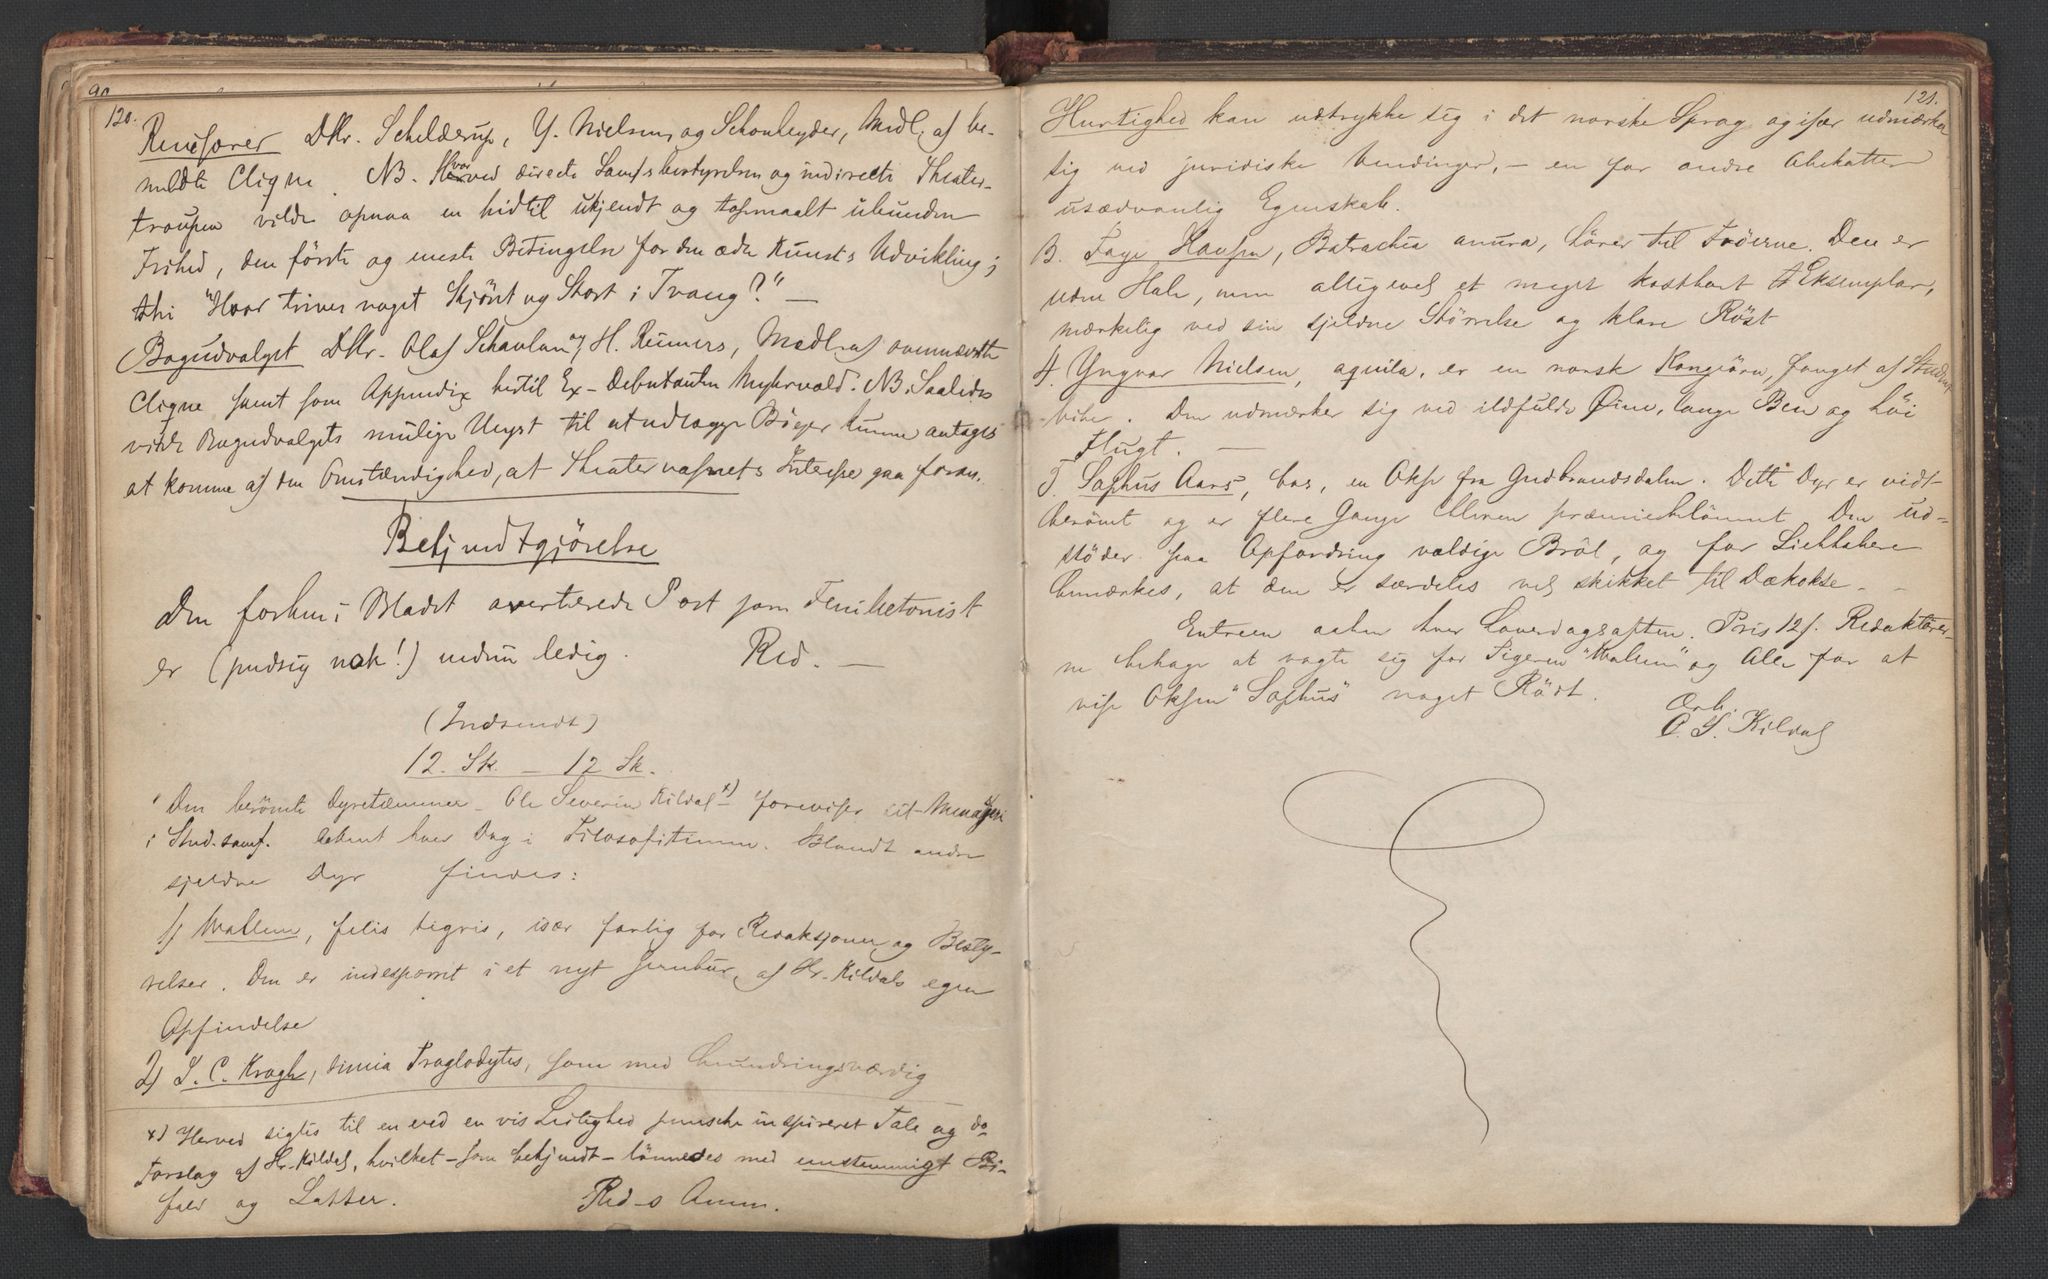 120.
Revisorer DHr. Schelderup, Y. Nielsen, og Schonheyder, Medl. af be-
meldte Clique. NB. Hvorved directe Samf.s bestyrelsen og indirecte Theater-
troupen vilde opnaa en hidtil ukjendt og ubunden
Frihed, den förste og meste Betingelse for den ædle Kunst's Udvikling;
thi "Hvor trives noget Skjönt og Stort i Tvang?" —
Bogudvalget DHr. Olaf Schavlan og H. Reimers, Medl. af ovennævnte
Clique samt som Appendix hertil Ex-Debutanten Myhrvold. NB. Saaledes
vilde Bogudvalgets mulige Ulyst til at udlægge Böger kunne antages
at komme af den Omstændighed, at Theatervæsnets Interesse gaa foran.
Bekjendtgjörelse
Den forhen i Bladet averterede Post som Feuilletonist
er (pudsig nok!) endnu ledig. Red. —
(Indsendt)
12. Sk. – 12 Sk.
Den berömte Dyretæmmer – Ole Severin Kildal x) foreviser sit Menageri
i Stud.samf. aabent hver Dag i Filosofitimen. Blandt andre
sjeldne Dyr findes:
1) Mallem, felis tigris, især farlig for Redaksjoner og Besty-
relser. Den er indespærret i et nyt Jernbur, af Hr. Kildals egen
Opfindelse
2) S. C. Kragh, simia Troglodytes, som med beundringsværdig
x) Herved sigtes til en ved en vis Leilighed punsche inspireret Tale og do
Forslag af Hr. Kildal, hvilket – som bekjendt – lönnedes med enstemmigt Bi-
fald og Latter. Red-s Anm.
121.
Hurtighed kan udtrykke sig i det norske Sprog og især udmærker
sig ved juridiske Vendinger, – en for andre Abekatter
usædvanlig Egenskab.
3. Faye Hansen, Batrachia anura, hörer til Fröerne. Den er
uden Hale, men alligevel et meget kostbart Eksemplar,
mærkelig ved sin sjeldne Störrelse og klare Röst
4. Yngvar Nielsen, aquila, er en norsk Kongeörn, fanget af
Den udmærker sig ved ildfulde Öine, lange Ben og höi
Flugt. —
5. Sophus Aars, bos, en Okse fra Gudbrandsdalen. Dette Dyr er vidt-
berömt og er flere Gange bleven præmiebelönnet Den ud-
stöder paa Opfordring vældige Bröl, og for Liebhabere
bemærkes, at den er særdeles vel skikket til Dækokse – –
Entreen aaben hver Löverdagsaften. Pris 12 s. Redaktörer-
ne behage at vogte sig for Tigeren "Mallem" og Alle for at
vise Oksen "Sophus" noget Rödt.
Ærb.
O. S. Kildal